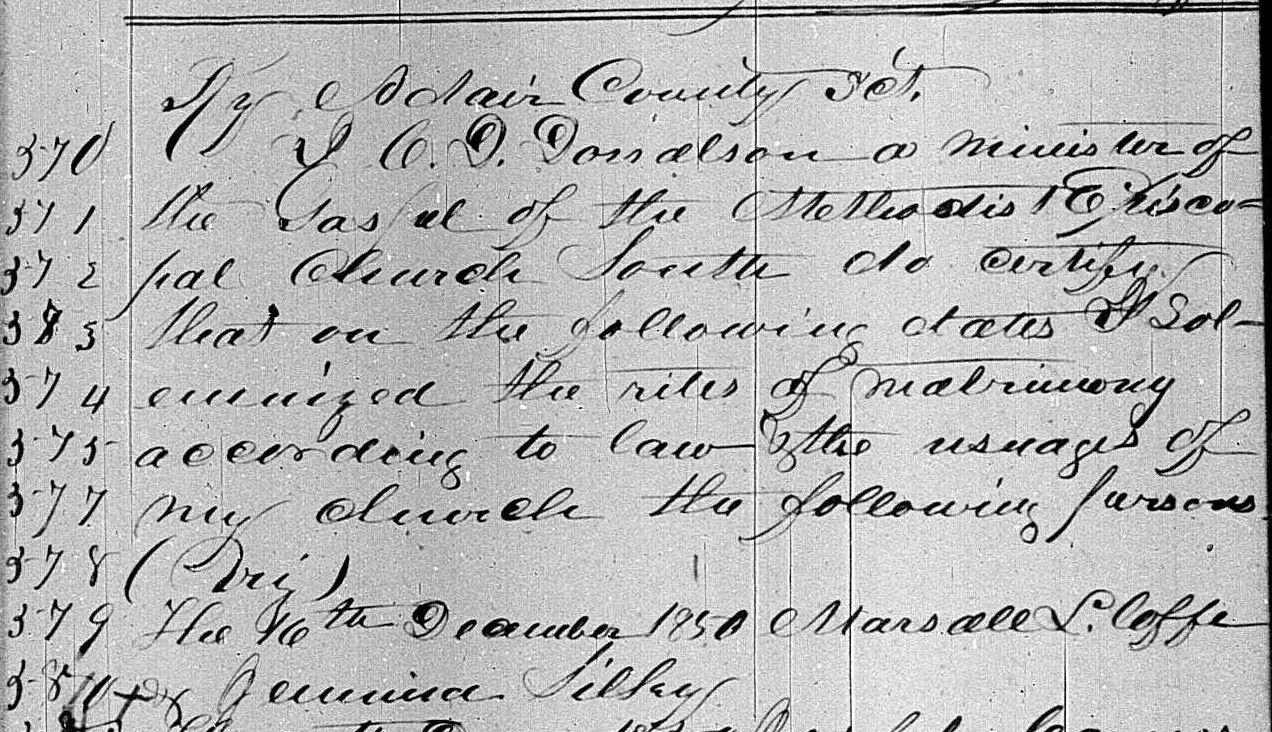 Ky Adair County Sct.
370 I C. D. Donalson a minister of
371 the Gospel of the Methodist Episco=
372 pal Church South do certify
373 that on the following dates I Sol-
374 emnized the rites of matrimony
375 according to law & the usages of
377 my church the following persons
378 (Viz)
379 The 16th December 1850 Marsall L. Coffe
380 & Jemima Silkey